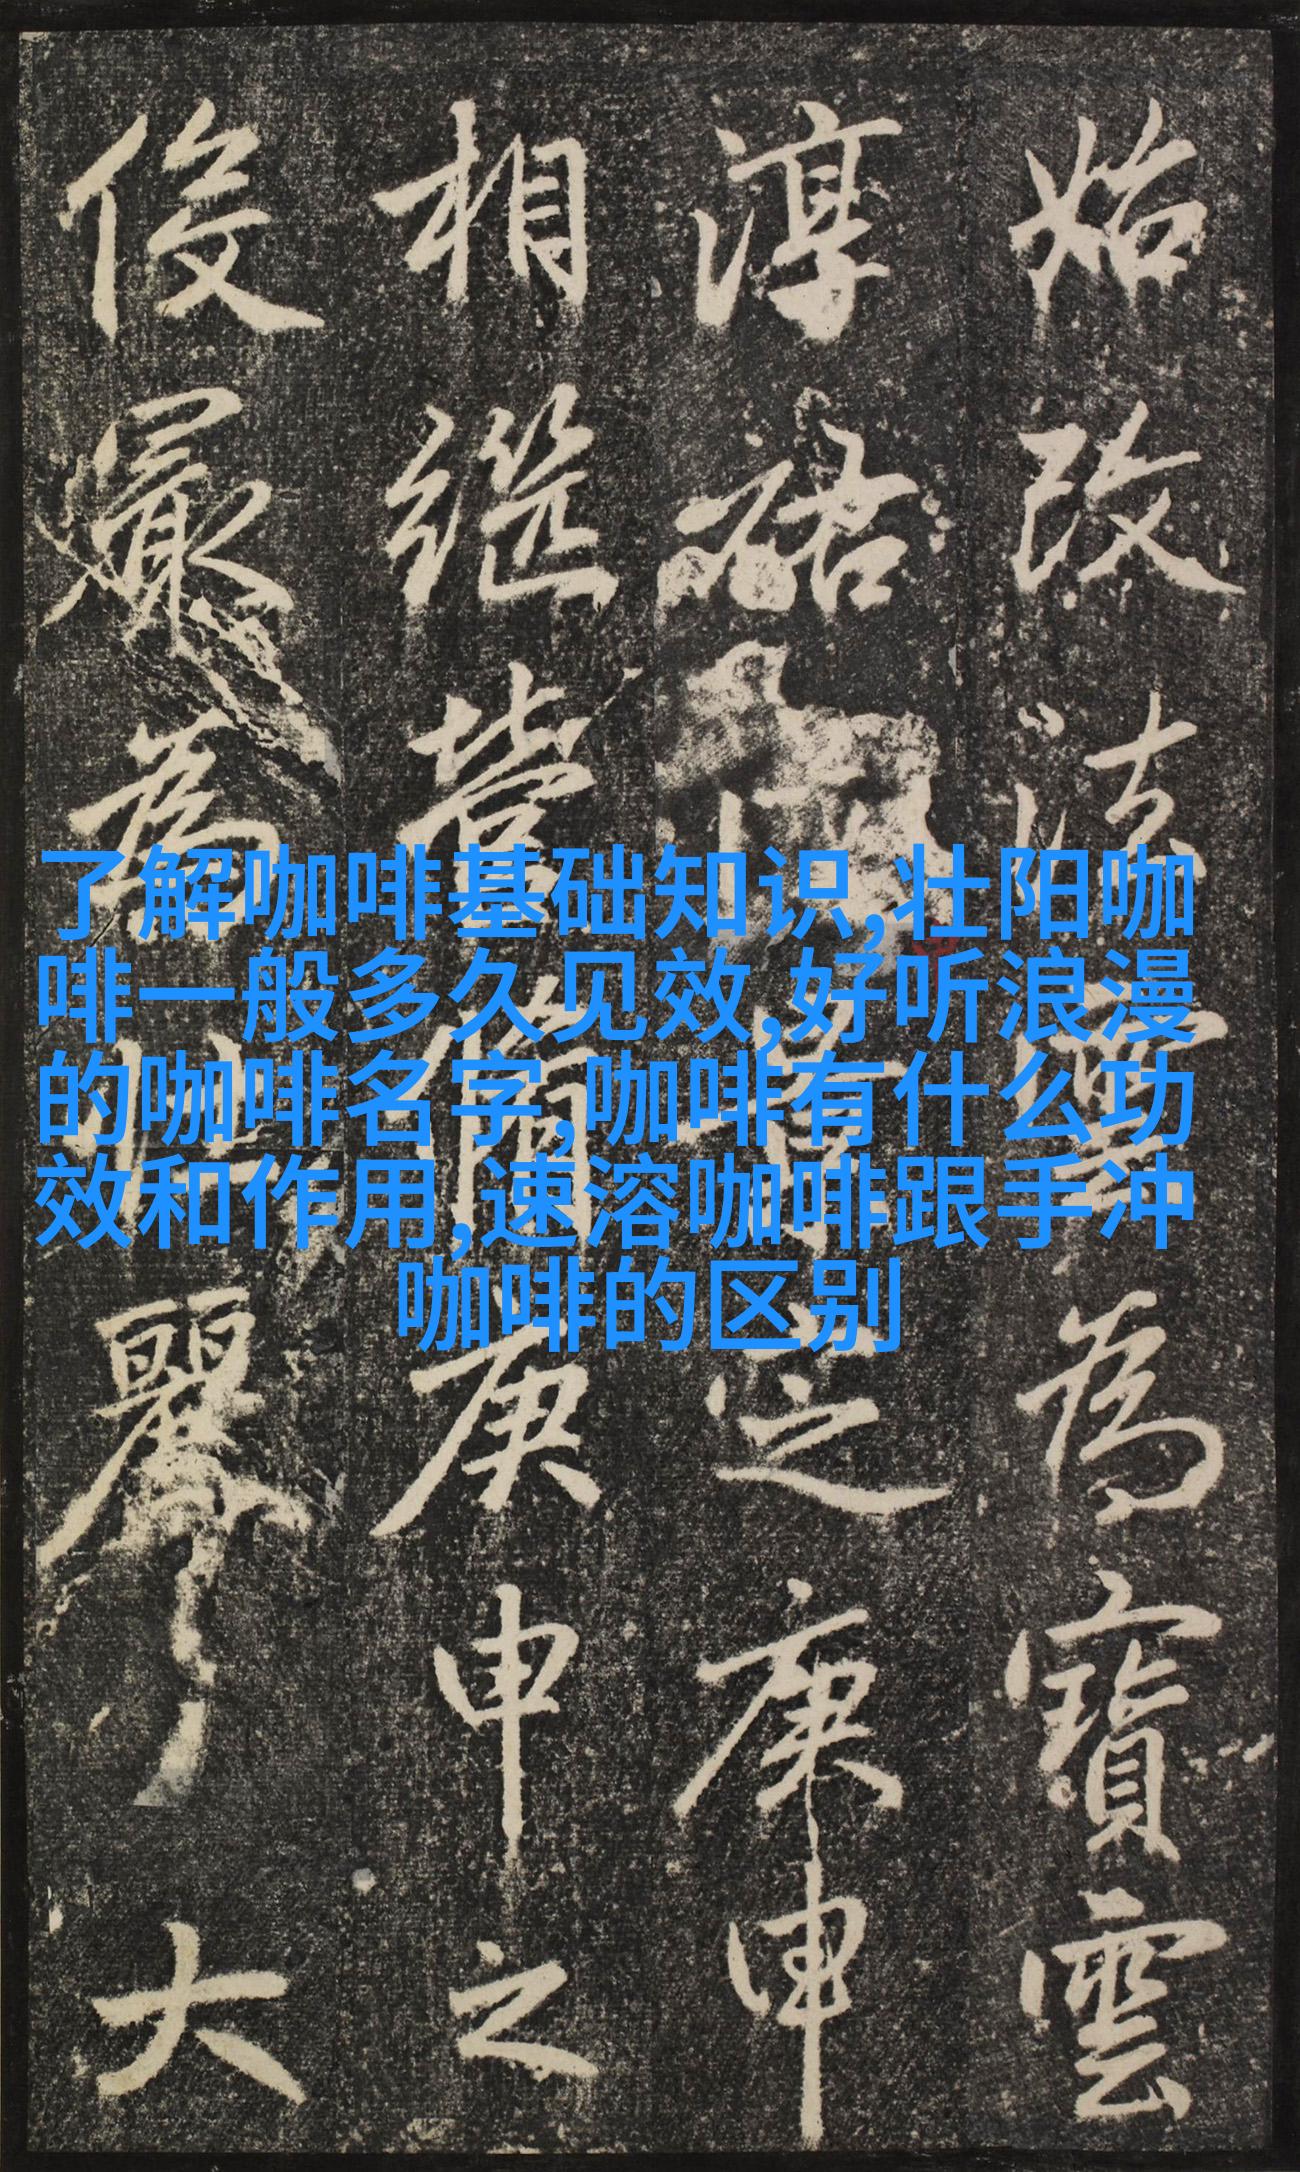 始改法雲為寶雲
淳祐
之庚申
相继营
庚申之
俊最為
壯麗
大
了解咖啡基础知识,壮阳咖
啡一般多久见效,好听浪漫
的咖啡名字,咖啡有什么功
效和作用,速溶咖啡跟手冲
咖啡的区别